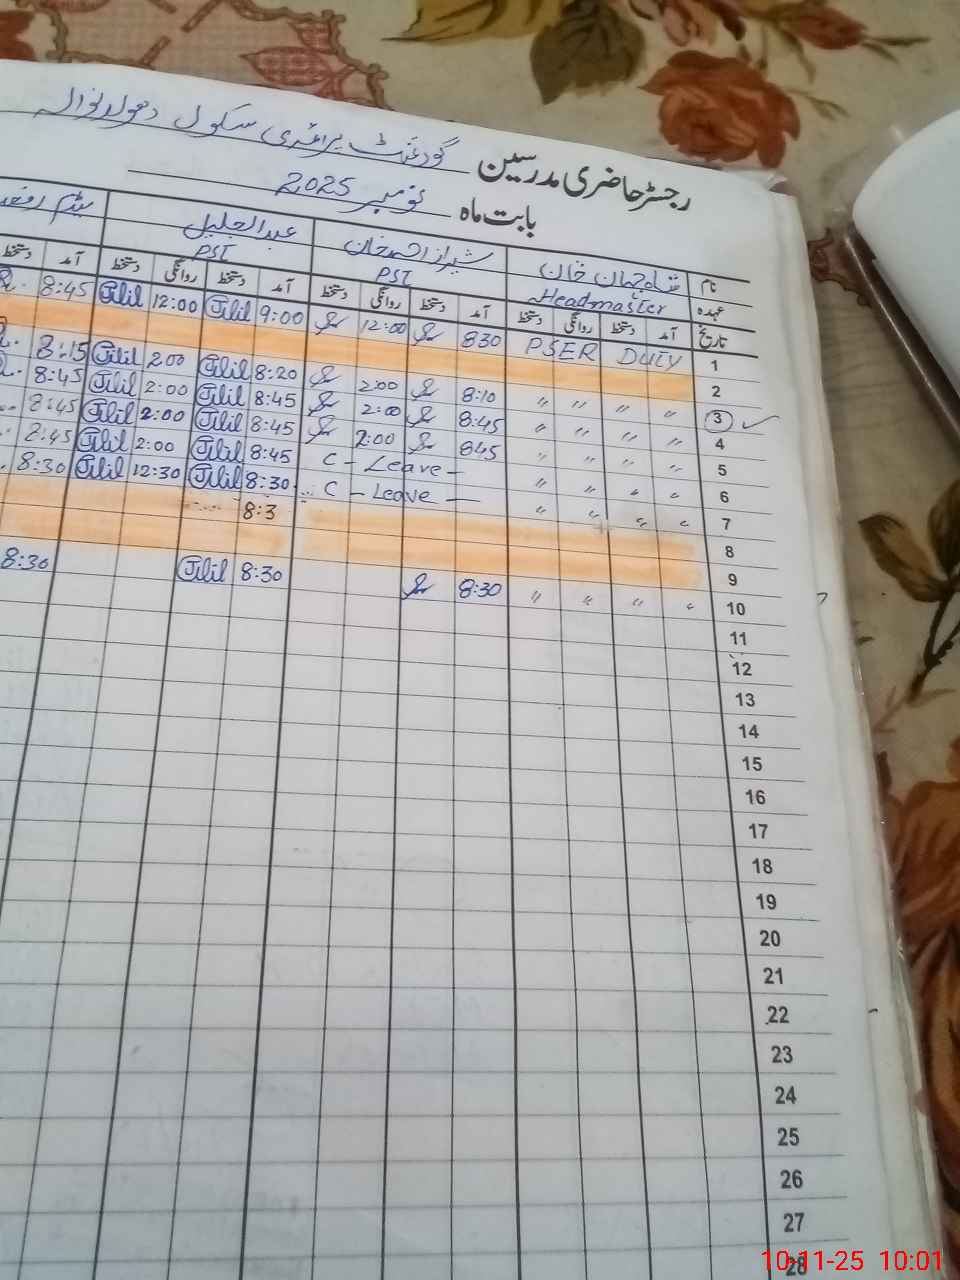 رجسٹر حاضری مدرسین گورنمنٹ پرائمری سکول
بابت ماہ نومبر 2025
نام شاہ جہان خان شیراز احمد خان عبدالجلیل میڈم
عہدہ Headmaster PST PST
تاریخ آمد دستخط روانگی دستخط آمد دستخط روانگی دستخط آمد دستخط روانگی دستخط آمد دستخط
1 PSER DUTY 830 12:00 9:00 Jlil 12:00 Jlil 8:45
2
3 " " " " 8:10 2:00 8:20 Jlil 200 Jlil 8:15
4 " " " " 8:45 2:00 8:45 Jlil 2:00 Jlil 8:45
5 " " " " 845 2:00 8:45 Jlil 2:00 Jlil 8:45
6 " " " " C - Leave - 8:45 Jlil 2:00 Jlil 8:45
7 " " " " C - Leave - 8:30 Jlil 12:30 Jlil 8:30
8 8:3
9
10 " " " " 8:30 8:30 Jlil 8:30
11
12
13
14
15
16
17
18
19
20
21
22
23
24
25
26
27
28
10-11-25 10:01